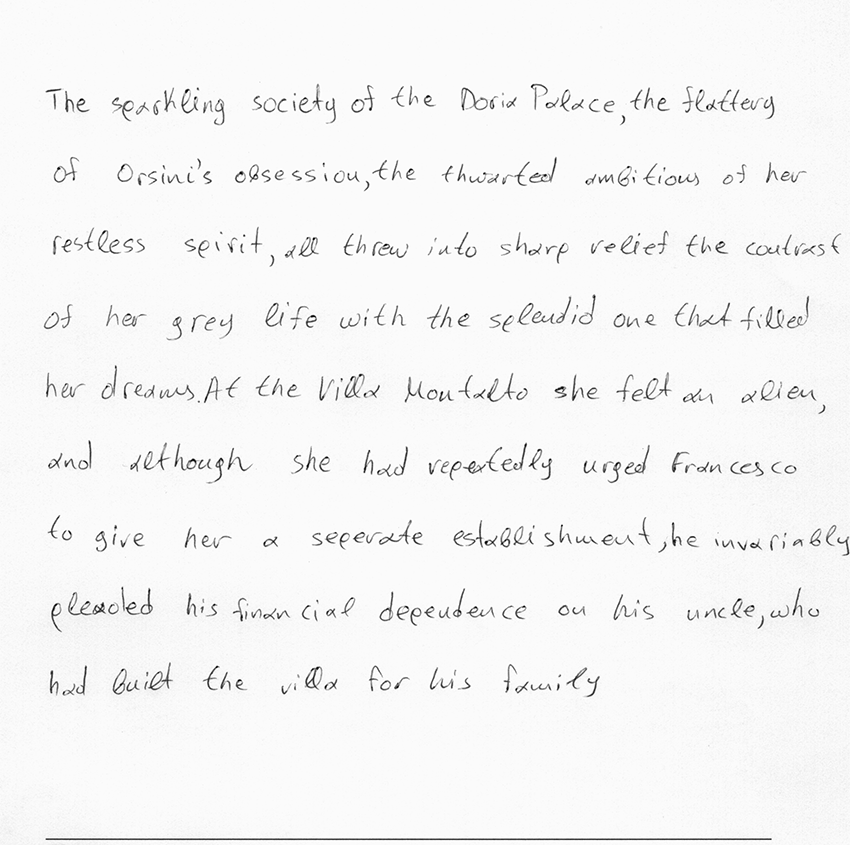 The sparkling society of the Doria Palace, the flattery
of Orsini's obsession, the thwarted ambitious of her
restless spirit, all threw into sharp relief the contrast
of her grey life with the splendid one that filled
her dreams. At the Villa Montalto she felt an alien,
and although she had repeatedly urged Francesco
to give her a seperate establishment, he invariably
pleaded his financial dependence on his uncle, who
had built the villa for his family